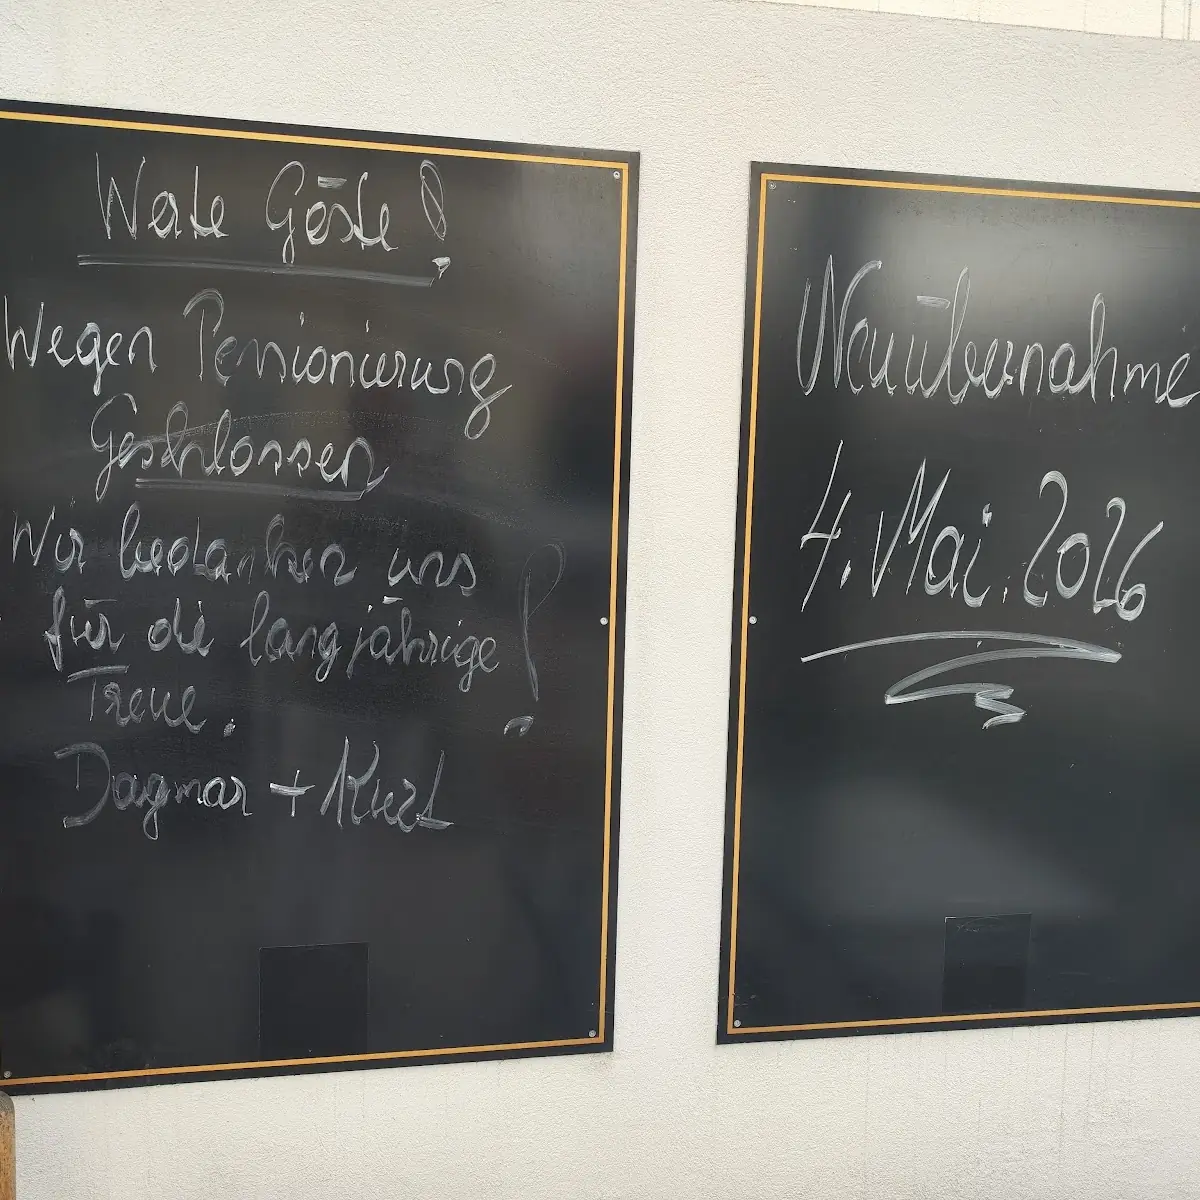 Werte Gäste!
Wegen Pensionierung
Geschlossen
Wir bedanken uns
für die langjährige
Treue.!
Dagmar + Kurt
Neuübernahme
4. Mai. 2026